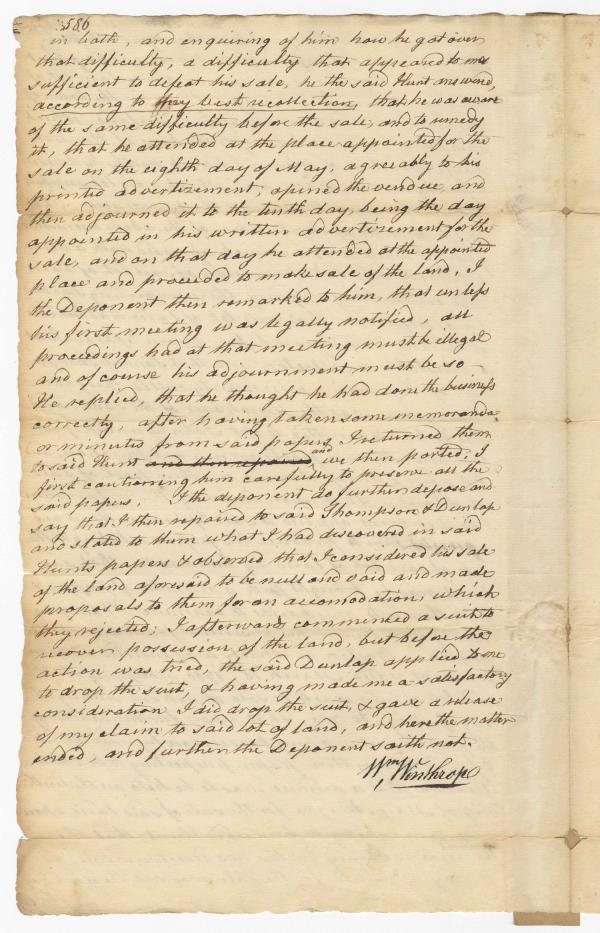 586
in both, and enquiring of him how he got over
that difficulty, a difficulty that appeared to me
sufficient to defeat his sale, he the said Hunt answered,
according to my best recollection, that he was aware
of the same difficulty before the sale, and to remedy
it, that he attended at the place appointed for the
sale on the eighth day of May, agreeably to his
printed advertizement, opened the vendue, and
then adjourned it to the tenth day, being the day
appointed in his written advertizement for the
sale, and on that day he attended at the appointed
place and proceeded to make sale of the land. I
the Deponent then remarked to him, that unless
his first meeting was legally notified, all
proceedings had at that meeting must be illegal
and of course his adjournment must be so
He replied, that he thought he had done the business
correctly, after having taken some memoranda
or minutes from said papers I returned them
to said Hunt and then repaired and we then parted, I
first cautioning him carefully to preserve all the
said papers. I the deponent do further depose and
say that I then repaired to said Thompson & Dunlap
and stated to them what I had discovered in said
Hunts papers & observed that I considered his sale
of the land aforesaid to be null and void and made
proposals to them for an accomodation, which
they rejected; I afterwards commenced a suit to
recover possession of the land, but before the
action was tried, the said Dunlap applied to me
to drop the suit, & having made me a satisfactory
consideration I did drop the suit, & gave a release
of my claim to said lot of land, and here the matter
ended, and further the Deponent saith not.
Wm Winthrop